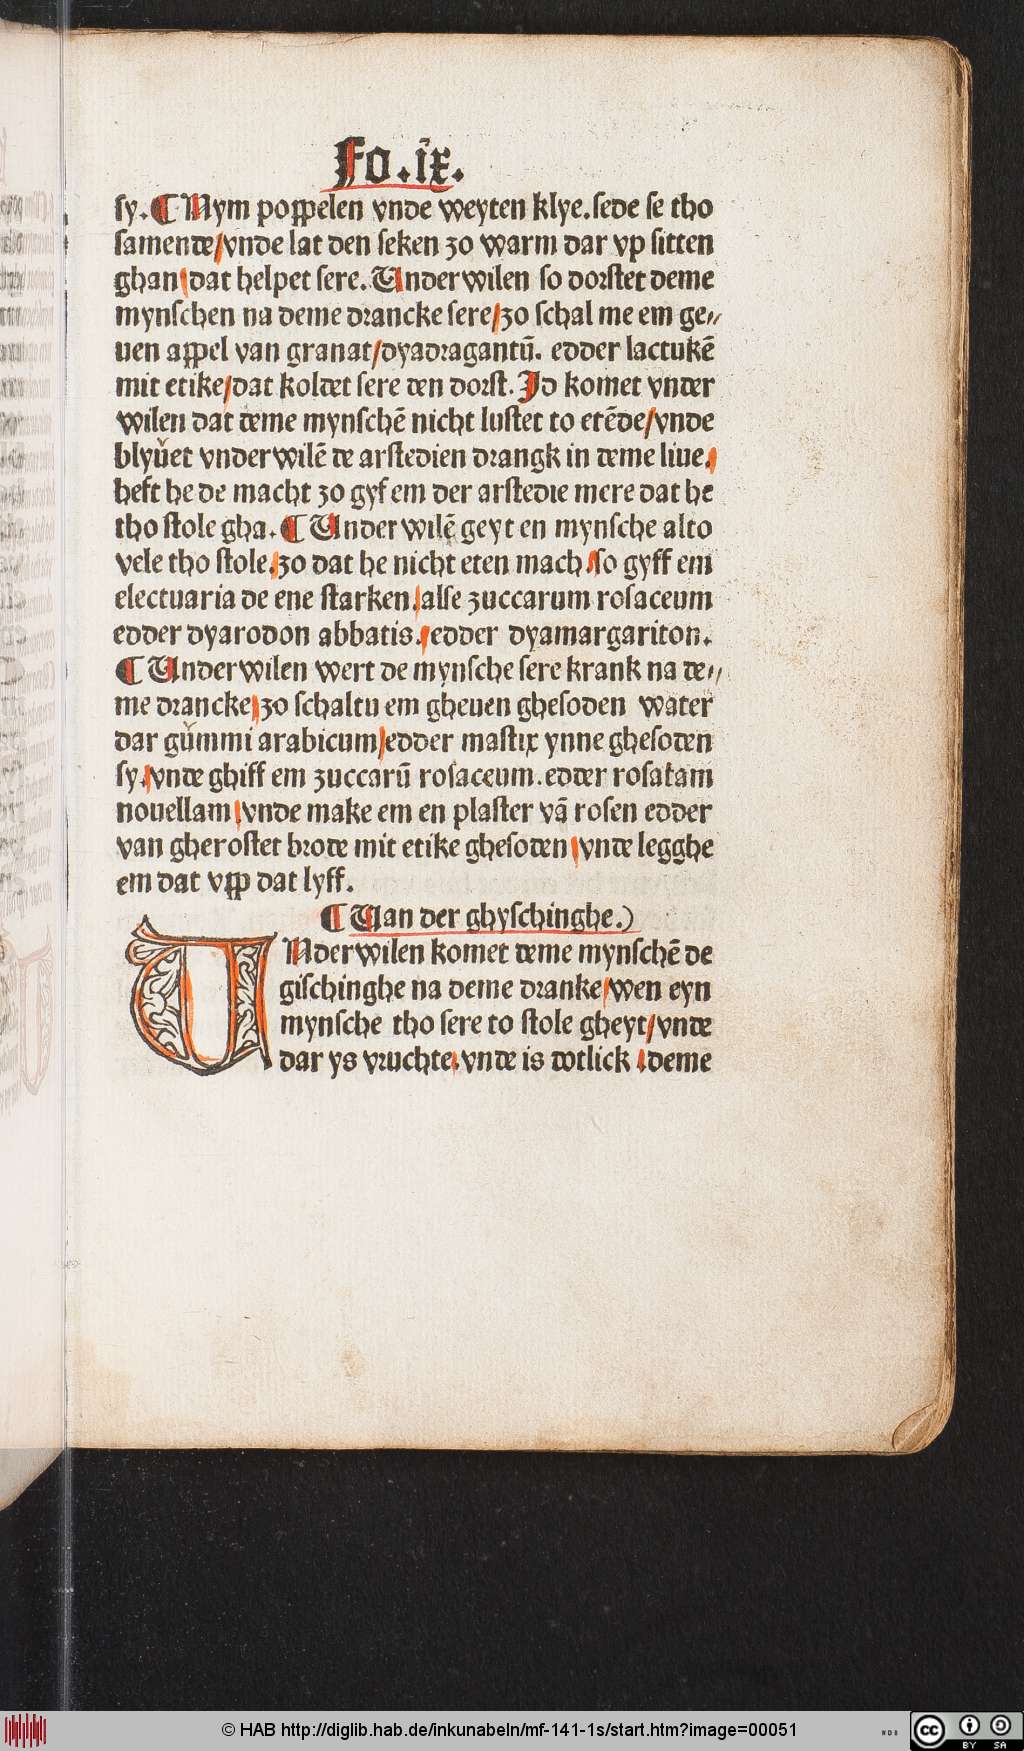 Fo.ix.
sy. ¶ Nym poppelen vnde weyten klye. sede se tho
samende/vnde lat den seken zo warm dar vp sitten
ghan/dat helpet sere. Underwilen so dorstet deme
mynschen na deme drancke sere/zo schal me em ge⸗
uen appel van granat/dyadragantū. edder lactukē
mit etike/dat koldet sere den dorst. Id komet vnder
wilen dat deme mynschē nicht lustet to etēde/vnde
blyůet vnderwilē de arstedien drangk in deme liue/
heft he de macht zo gyf em der arstedie mere dat he
tho stole gha. ¶ Underwilē geyt en mynsche alto
vele tho stole/zo dat he nicht eten mach/so gyff em
electuaria de ene starken/alse zuccarum rosaceum
edder dyarodon abbatis./edder dyamargariton.
¶ Underwilen wert de mynsche sere krank na de⸗
me drancke/zo schaltu em gheuen ghesoden water
dar gůmmi arabicum/edder mastix ynne ghesoden
sy/vnde ghiff em zuccarū rosaceum. edder rosatam
nouellam/vnde make em en plaster vā rosen edder
van gherostet brode mit etike ghesoden/vnde legghe
em dat vpp dat lyff.
¶ Uan der ghyschinghe.)
UNderwilen komet deme mynschē de
gischinghe na deme dranke/wen eyn
mynsche tho sere to stole gheyt/vnde
dar ys vruchte/vnde is dotlick/deme
© HAB http://diglib.hab.de/inkunabeln/mf-141-1s/start.htm?image=00051
WDB
cc BY SA